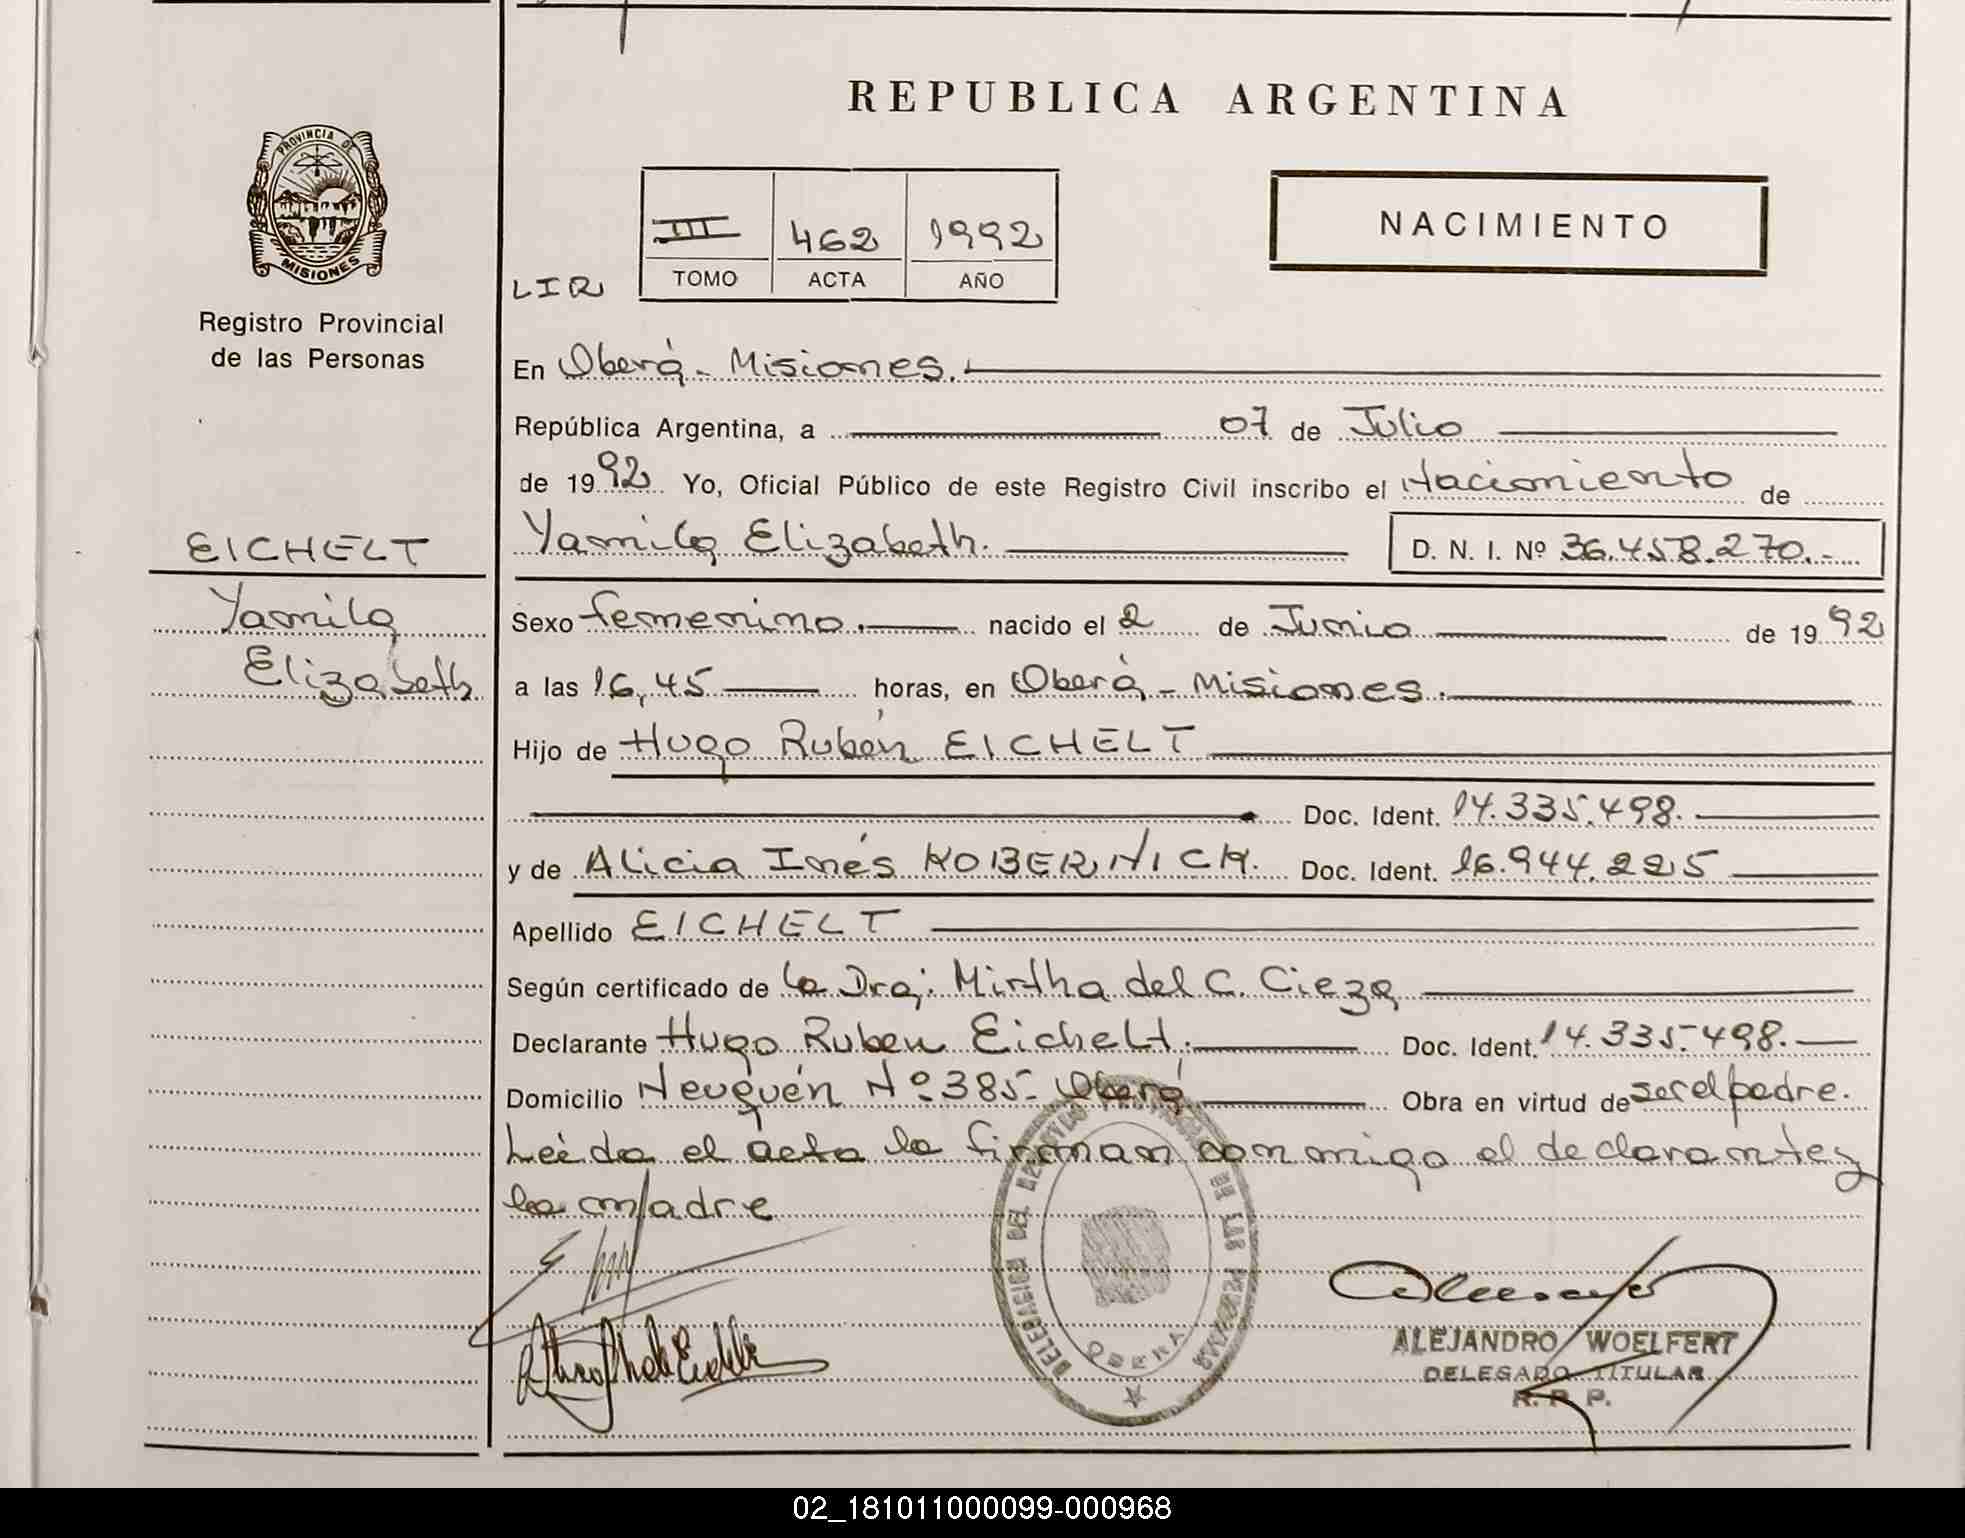 REPUBLICA ARGENTINA
PROVINCIA DE
MISIONES
Registro Provincial
de las Personas
III 462 1992
TOMO ACTA AÑO
NACIMIENTO
LIR
En Oberá - Misiones.
República Argentina, a 07 de Julio
de 1992 Yo, Oficial Público de este Registro Civil inscribo el Nacimiento de
Yamila Elizabeth. D. N. I. Nº 36.458.270.-
EICHELT
Yamila
Elizabeth
Sexo femenino. nacido el 2 de Junio de 1992
a las 16,45 horas, en Oberá - Misiones.
Hijo de Hugo Rubén EICHELT
Doc. Ident. 14.335.498.
y de Alicia Inés KOBERNICK. Doc. Ident. 16.944.225
Apellido EICHELT
Según certificado de la Dra; Mirtha del C. Cieza
Declarante Hugo Ruben Eichelt. Doc. Ident. 14.335.498.
Domicilio Neuquén Nº 385- Oberá Obra en virtud de ser el padre.
Leéda el acta la firman conmigo el declarante y
la madre
DELEGACION DEL REGISTRO PROVINCIAL DE LAS PERSONAS
OBERA
ALEJANDRO WOELFERT
DELEGADO TITULAR
R. P. P.
02_181011000099-000968